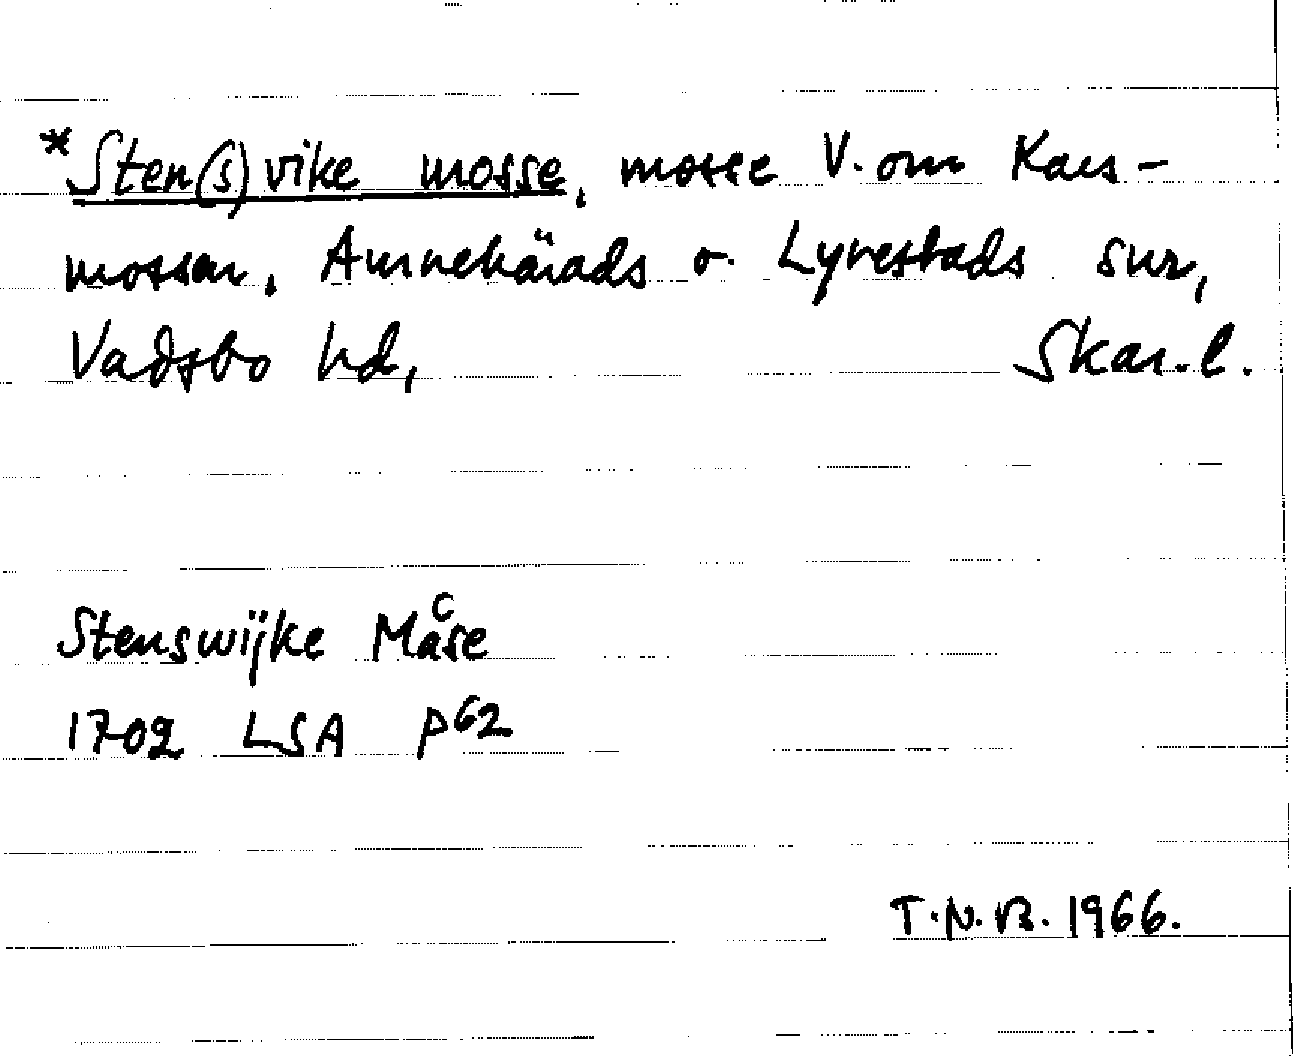 *Sten(s)vike mosse, mosse V. om Kaes-
mossen, Amnehärads o. Lyrestads snr,
Vadsbo hd, Skar.l.
Stenswijke Måse
1702 LSA P62
T.N.B. 1966.